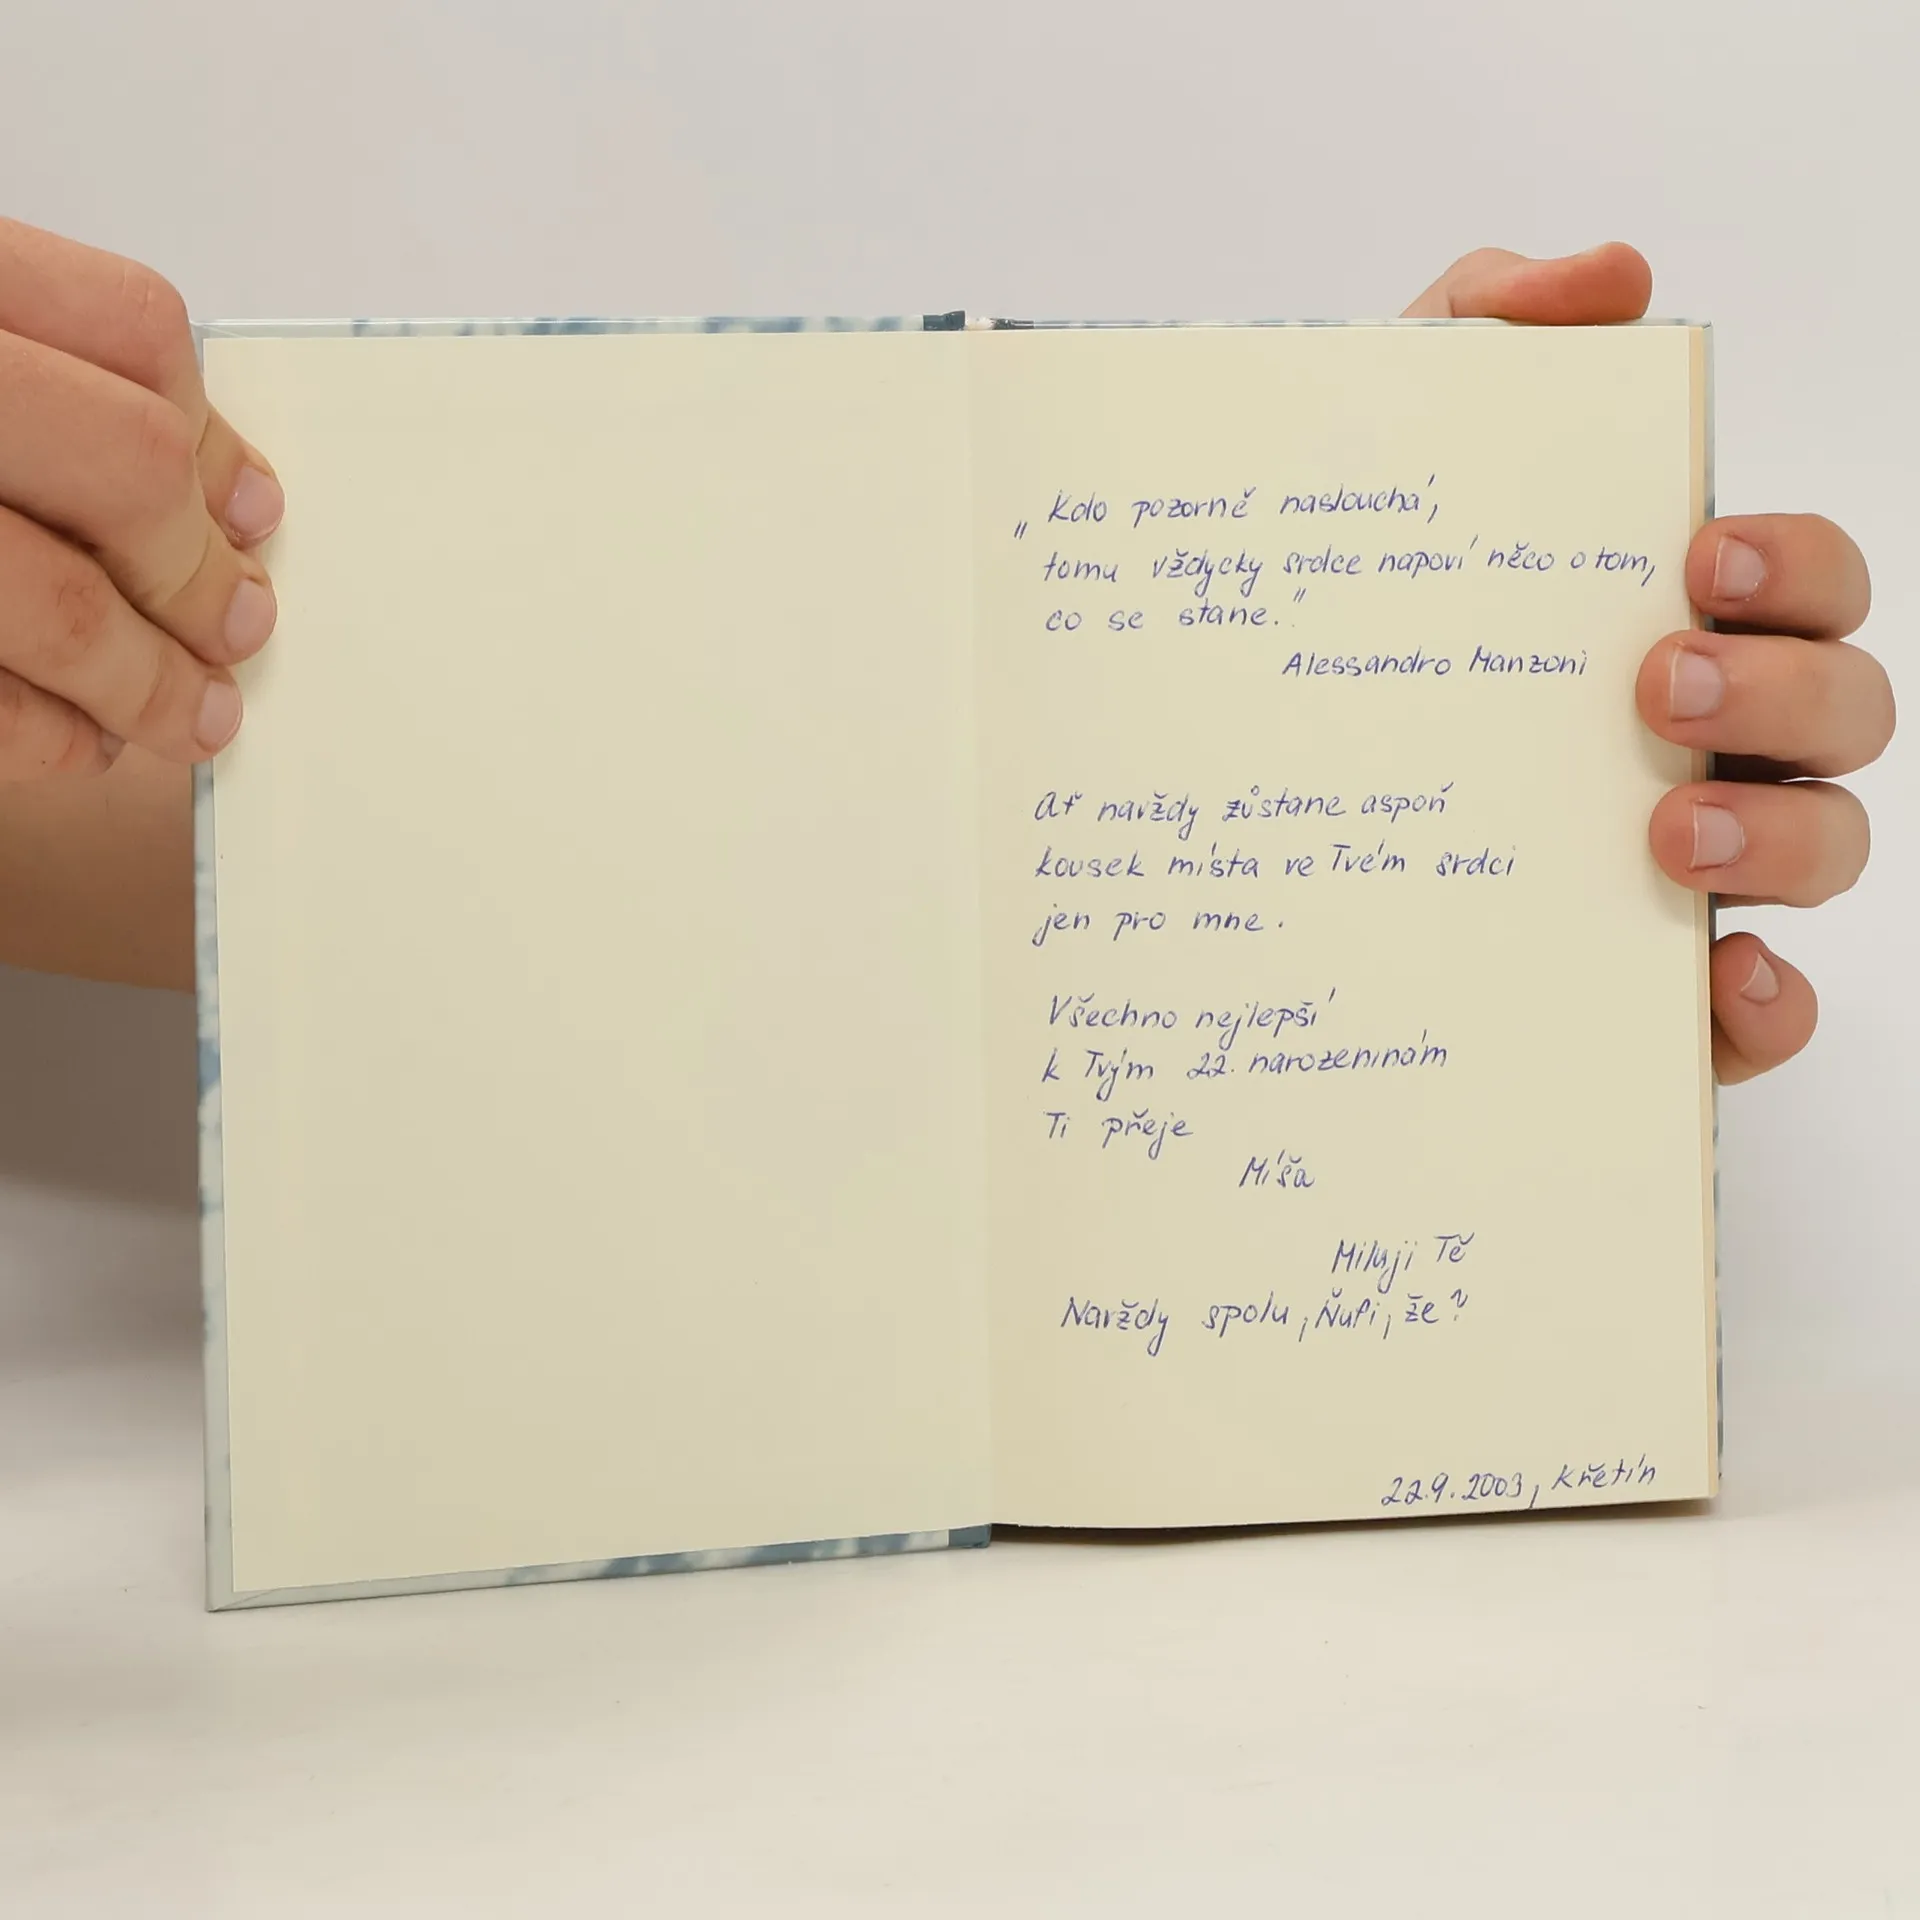 „Kdo pozorně naslouchá,
tomu vždycky srdce napoví něco o tom,
co se stane."
Alessandro Manzoni
Ať navždy zůstane aspoň
kousek místa ve Tvém srdci
jen pro mne.
Všechno nejlepší
k Tvým 22. narozeninám
Ti přeje
Míša
Miluji Tě
Navždy spolu, Ňufi, že?
22.9.2003, Křetín